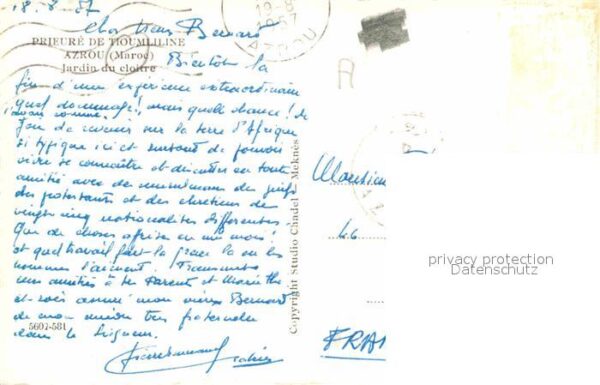 18.8.57
Cher vieux Bernard
PRIEURÉ DE TIOUMLILINE
AZROU (Maroc)
Jardin du cloître
Bientôt la
fin d'une expérience extraordinaire
quel dommage! mais quelle chance! de
sur la terre d'Afrique
si typique ici et surtout de pouvoir
vivre se connaître et discuter en toute
amitié avec des musulmans des juifs
des protestants et des chrétiens de
vingt cinq nationalités différentes.
Que de choses en un mois!
et quel travail fait la grâce là où les
hommes s'aiment. Transmets
mes amitiés à tes parents et
et sois assuré mon vieux Bernard
de mon union très fraternelle
dans le Seigneur.
5602-581
Copyright Studio Citadel - Meknès
1957
AZROU
R
Monsieur
44
FRAN
privacy protection
Datenschutz